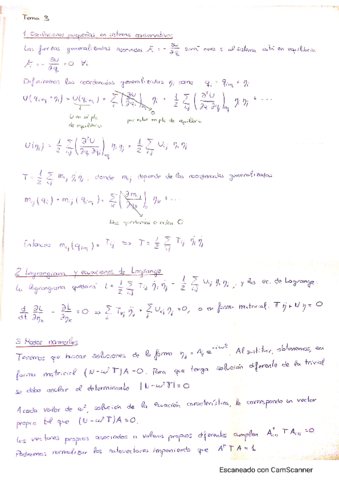 Tema 3
1. Oscilaciones pequeñas en sistema conservativos
Las fuerzas generalizadas asociadas F_i = -∂U/∂q_i serán nulas si el sistema está en equilibrio
F_i = -∂U/∂q_i = 0 ∀i
Definiremos las coordenadas generalizadas q_i como q_i = q_{0i} + η_i
U(q_{0i} + η_i) = U(q_{0i}) + Σ_i (∂U/∂q_i)_0 η_i + 1/2 Σ_{ij} (∂²U/∂q_i∂q_j)_0 η_i η_j + ...
U(η_i) = 1/2 Σ_{ij} (∂²U/∂q_i∂q_j)_0 η_i η_j = 1/2 Σ_{ij} U_{ij} η_i η_j
T = 1/2 Σ_{ij} m_{ij} η̇_i η̇_j, donde m_{ij} depende de las coordenadas generalizadas
m_{ij}(q_i) = m_{ij}(q_{0i}) + Σ_k (∂m_{ij}/∂q_k)_0 η_k + ...
Nos quedamos a orden 0
m_{ij}(q_{0i}) = T_{ij} => T = 1/2 Σ_{ij} T_{ij} η̇_i η̇_j
2. Lagrangiana y ecuaciones de Lagrange
La lagrangiana quedará L = 1/2 Σ_{ij} T_{ij} η̇_i η̇_j - 1/2 Σ_{ij} U_{ij} η_i η_j, y las ec. de Lagrange
d/dt ∂L/∂η̇_j - ∂L/∂η_j = 0 => Σ_i T_{ij} η̈_i + Σ_i U_{ij} η_i = 0, o en forma matricial T η̈ + U η = 0
3. Modos normales
Tenemos que buscar soluciones de la forma Al sustituir, obtenemos, en
forma matricial (U - ω²T) A = 0. Para que tenga solución diferente de la trivial
se debe anular el determinante |U - ω²T| = 0
A cada valor de ω², solución de la ecuación característica, le corresponde un vector
propio tal que (U - ω²T) A = 0.
Los vectores propios asociados a valores propios diferentes cumplen
Podremos normalizar los autovectores imponiendo que A⁺ T A = 1
Escaneado con CamScanner